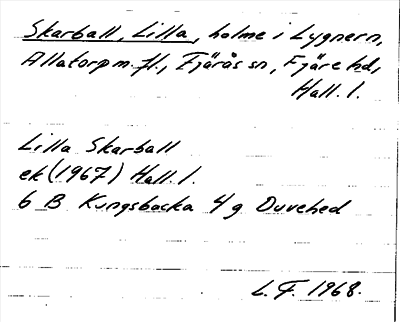 Skarball, Lilla, holme i Lygnern,
Allatorp m. fl., Fjärås sn, Fjäre hd,
Hall. l.
Lilla Skarball
ek (1967) Hall. l.
6 B Kungsbacka 4 g Duvehed
L. F. 1968.